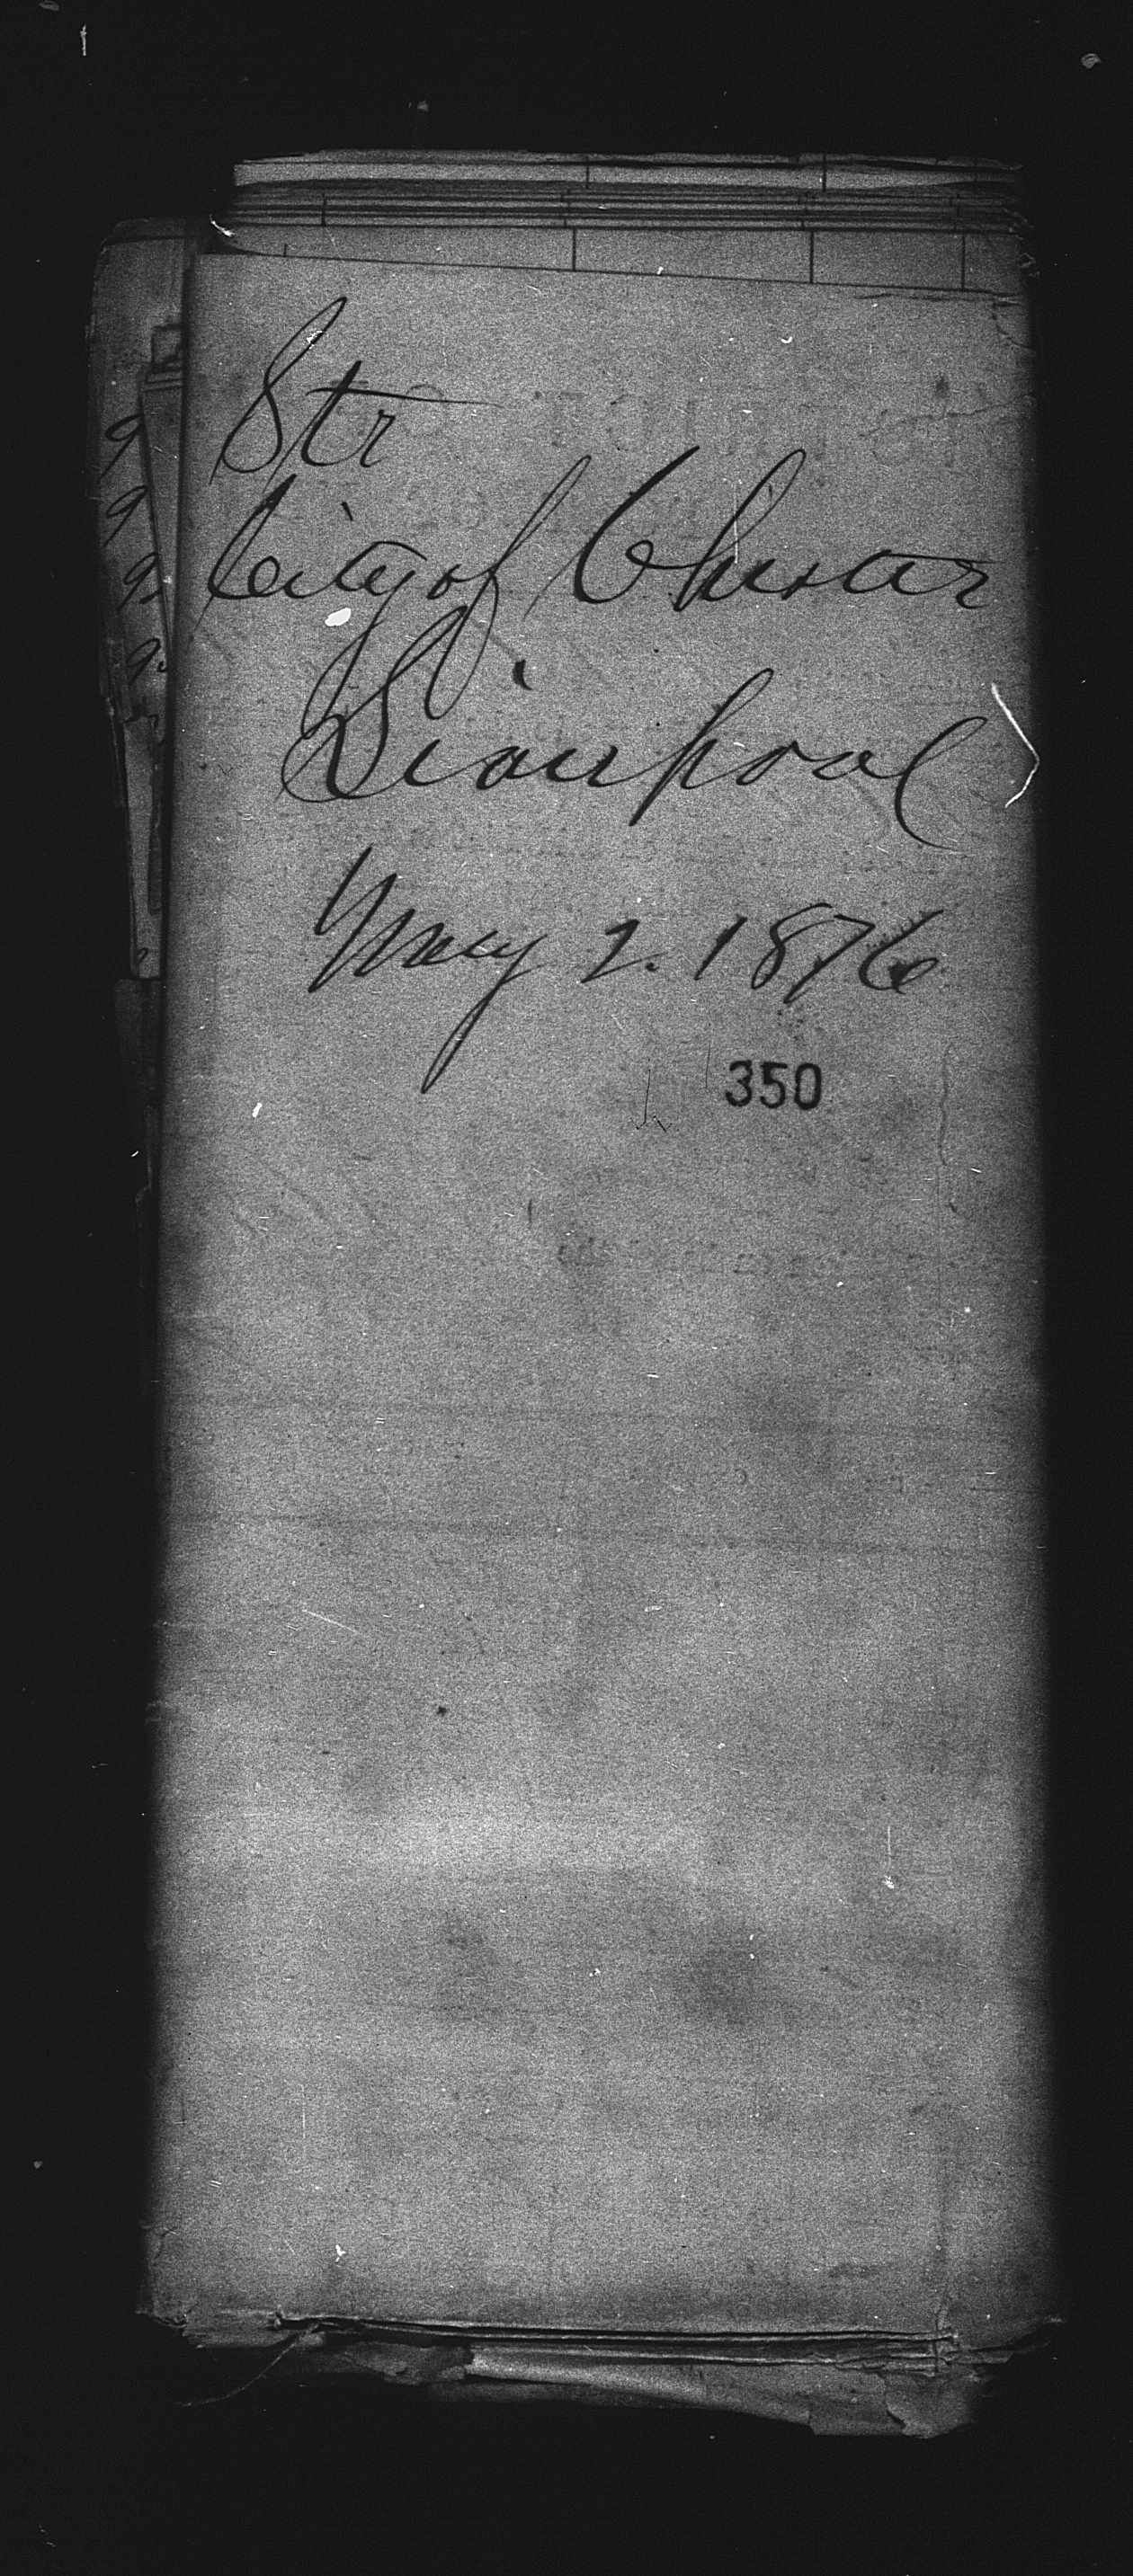 Str
City of Chester
Liverpool
May 2. 1876
350